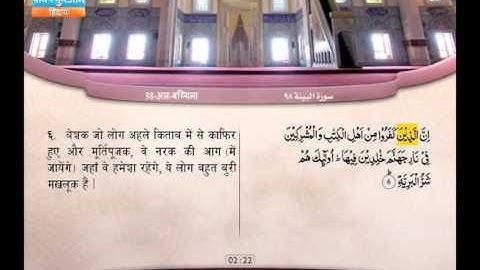 हिदायत
98-अल-बय्यिना
سورة البينة ٩٨
६. बेशक जो लोग अहले किताब में से काफिर
हुए और मूर्तिपूजक, वे नरक की आग (में
जायेंगे) जहाँ वे हमेशा रहेंगे, ये लोग बहुत बुरी
मखलूक हैं |
اِنَّ الَّذِيْنَ كَفَرُوْا مِنْ اَهْلِ الْكِتٰبِ وَ الْمُشْرِكِيْنَ
فِيْ نَارِ جَهَنَّمَ خٰلِدِيْنَ فِيْهَا ؕ اُولٰٓىِٕكَ هُمْ
شَرُّ الْبَرِيَّةِ ؕ ۶
02:22